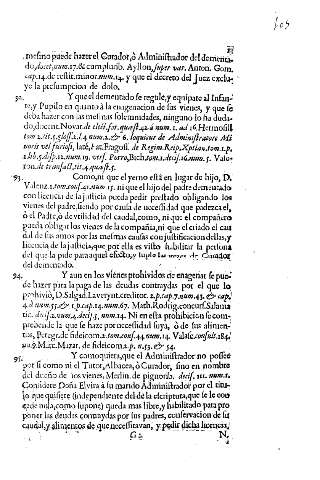 25
mesmo puede hazer el Curador, ò Administrador del dementa-
do, docet, num.17. & cum pluribus. Ayllon, super var. Anton. Gom.
cap.14. de restit. minor. num.14. y que el decreto del Juez exclu-
ye la presumpcion de dolo.
92. Y que el dementado se regule, y equipare al Infan-
te, y Pupilo en quanto à la enagenacion de sus vienes, y que se
deba hazer con las mesmas solemnidades, ninguno lo ha duda-
do, docent, Novar. de num. 1. ad 16. Hermosill.
tom. 2. tit. 5. gloss. 2. l.4. num. 2. & 6. loquitur de Administratore Mi-
noris vel furiosi, latè, Fragos. de Regim. Reip. Xptian. tom. 1. p.
1. lib. 5. disp. 12. num. 19. vers. Porro, Bich. tom. 1. decis. 16. num. 5. Vale-
ron. de transact. tit. 4. quæst. 5.
93. Como, ni que el yerno està en lugar de hijo, D.
Valenz. 1. tom. consf. 40. num. 15. ni que el hijo del padre dementado
con licencia de la justicia pueda pedir prestado obligando los
vienes del padre, siendo por causa de necessidad que padezca el,
ò el Padre, ò devilidad del caudal, como, ni que el compañero
pueda obligar los vienes de la compañia, ni que el criado el cau
dal de sus amos por las mesmas causas con justificacion dellas, y
licencia de la justicia, que por ella es visto habilitar la persona
del que la pide para aquel efecto, y suple las vezes de Curador
del demenado.
94. Y aun en los vienes prohividos de enagenar se pue-
de hazer para la paga de las deudas contraydas por el que lo
prohiviò, D. Salgad. Laverynt. creditor. 2. p. cap. 7. num. 43. & cap.
4. à num. 55. & 1. p. cap. 14. num. 67. Math. Rodrig. concurs. Salama
tic. decis. 2. num. 4. decis. 3. num. 14. Ni en esta prohibicion se com-
prehende la que se haze por necessidad suya, ò de sus alimen-
tos, Peregr. de fideicom. 2. tom. consf. 44. num. 14. Valasc. consult. 184.
nu. 9. Marc. Marat. de fideicom. 2. p. n. 53. & 54.
95. Y como quiera, que el Administrador no possee
por si como ni el Tutor, Albacea, ò Curador, sino en nombre
del dueño de los vienes, Merlin. de pignorib. decis. 111. num. 2.
Considere Doña Elvira à su marido Administrador por el titu-
lo que quisiere (independente del de la escriptura, que se le con
cede nula, como supone) queda mas libre, y habilitado para pro
poner las deudas contraydas por sus padres, conservacion de su
caudal, y alimentos de que necessitavan, y pedir dicha licencia,
G 2 N.